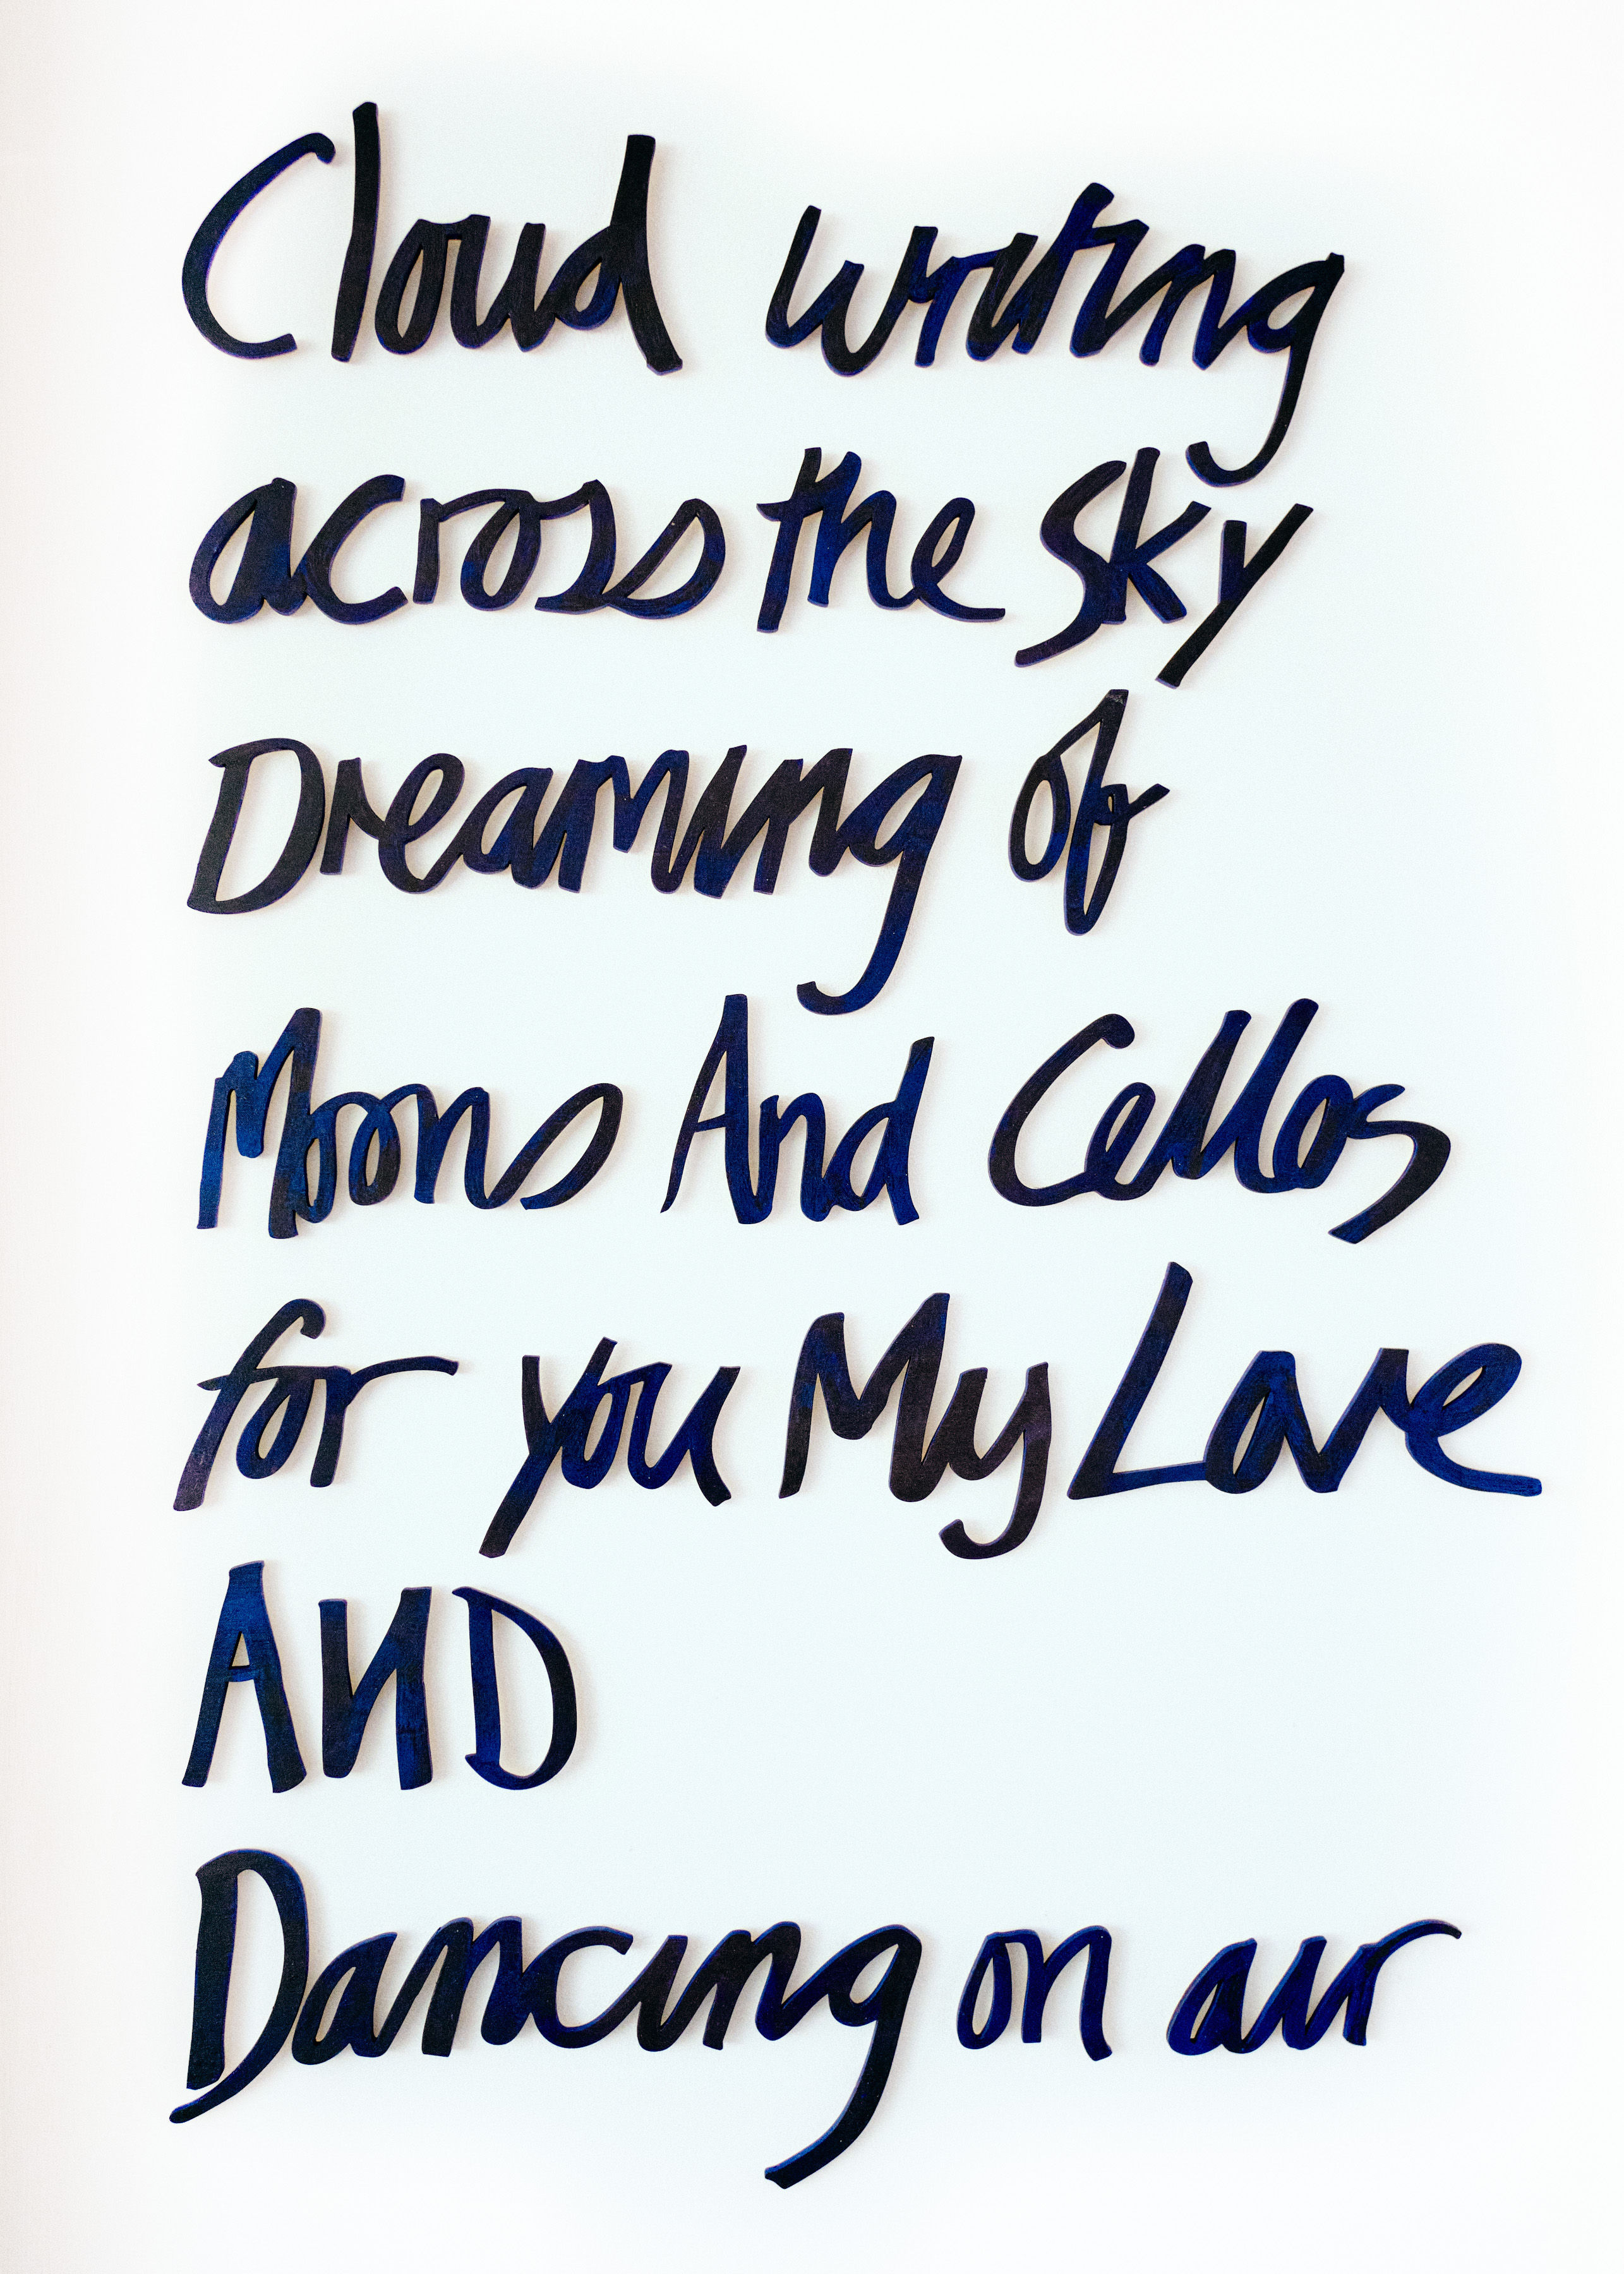 Cloud writing
across the sky
Dreaming of
Moons And Cellos
for you My Love
AND
Dancing on air